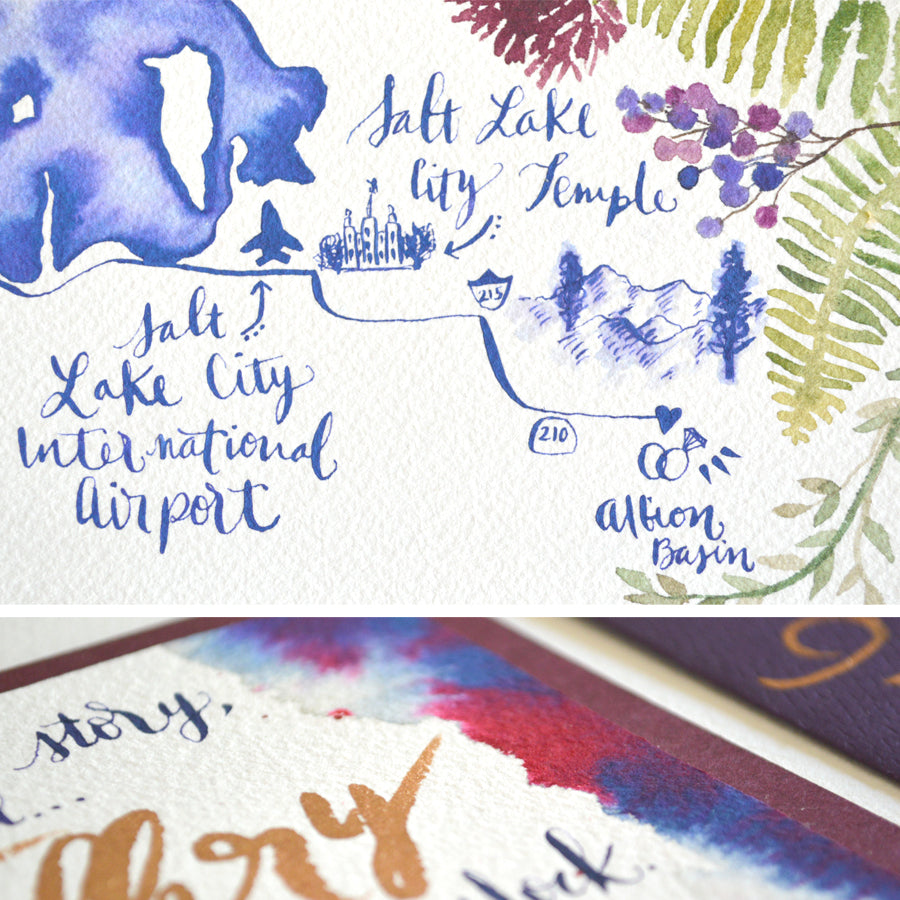 Salt Lake
City Temple
215
Salt
Lake City
International
Airport
210
Albion
Basin
story,